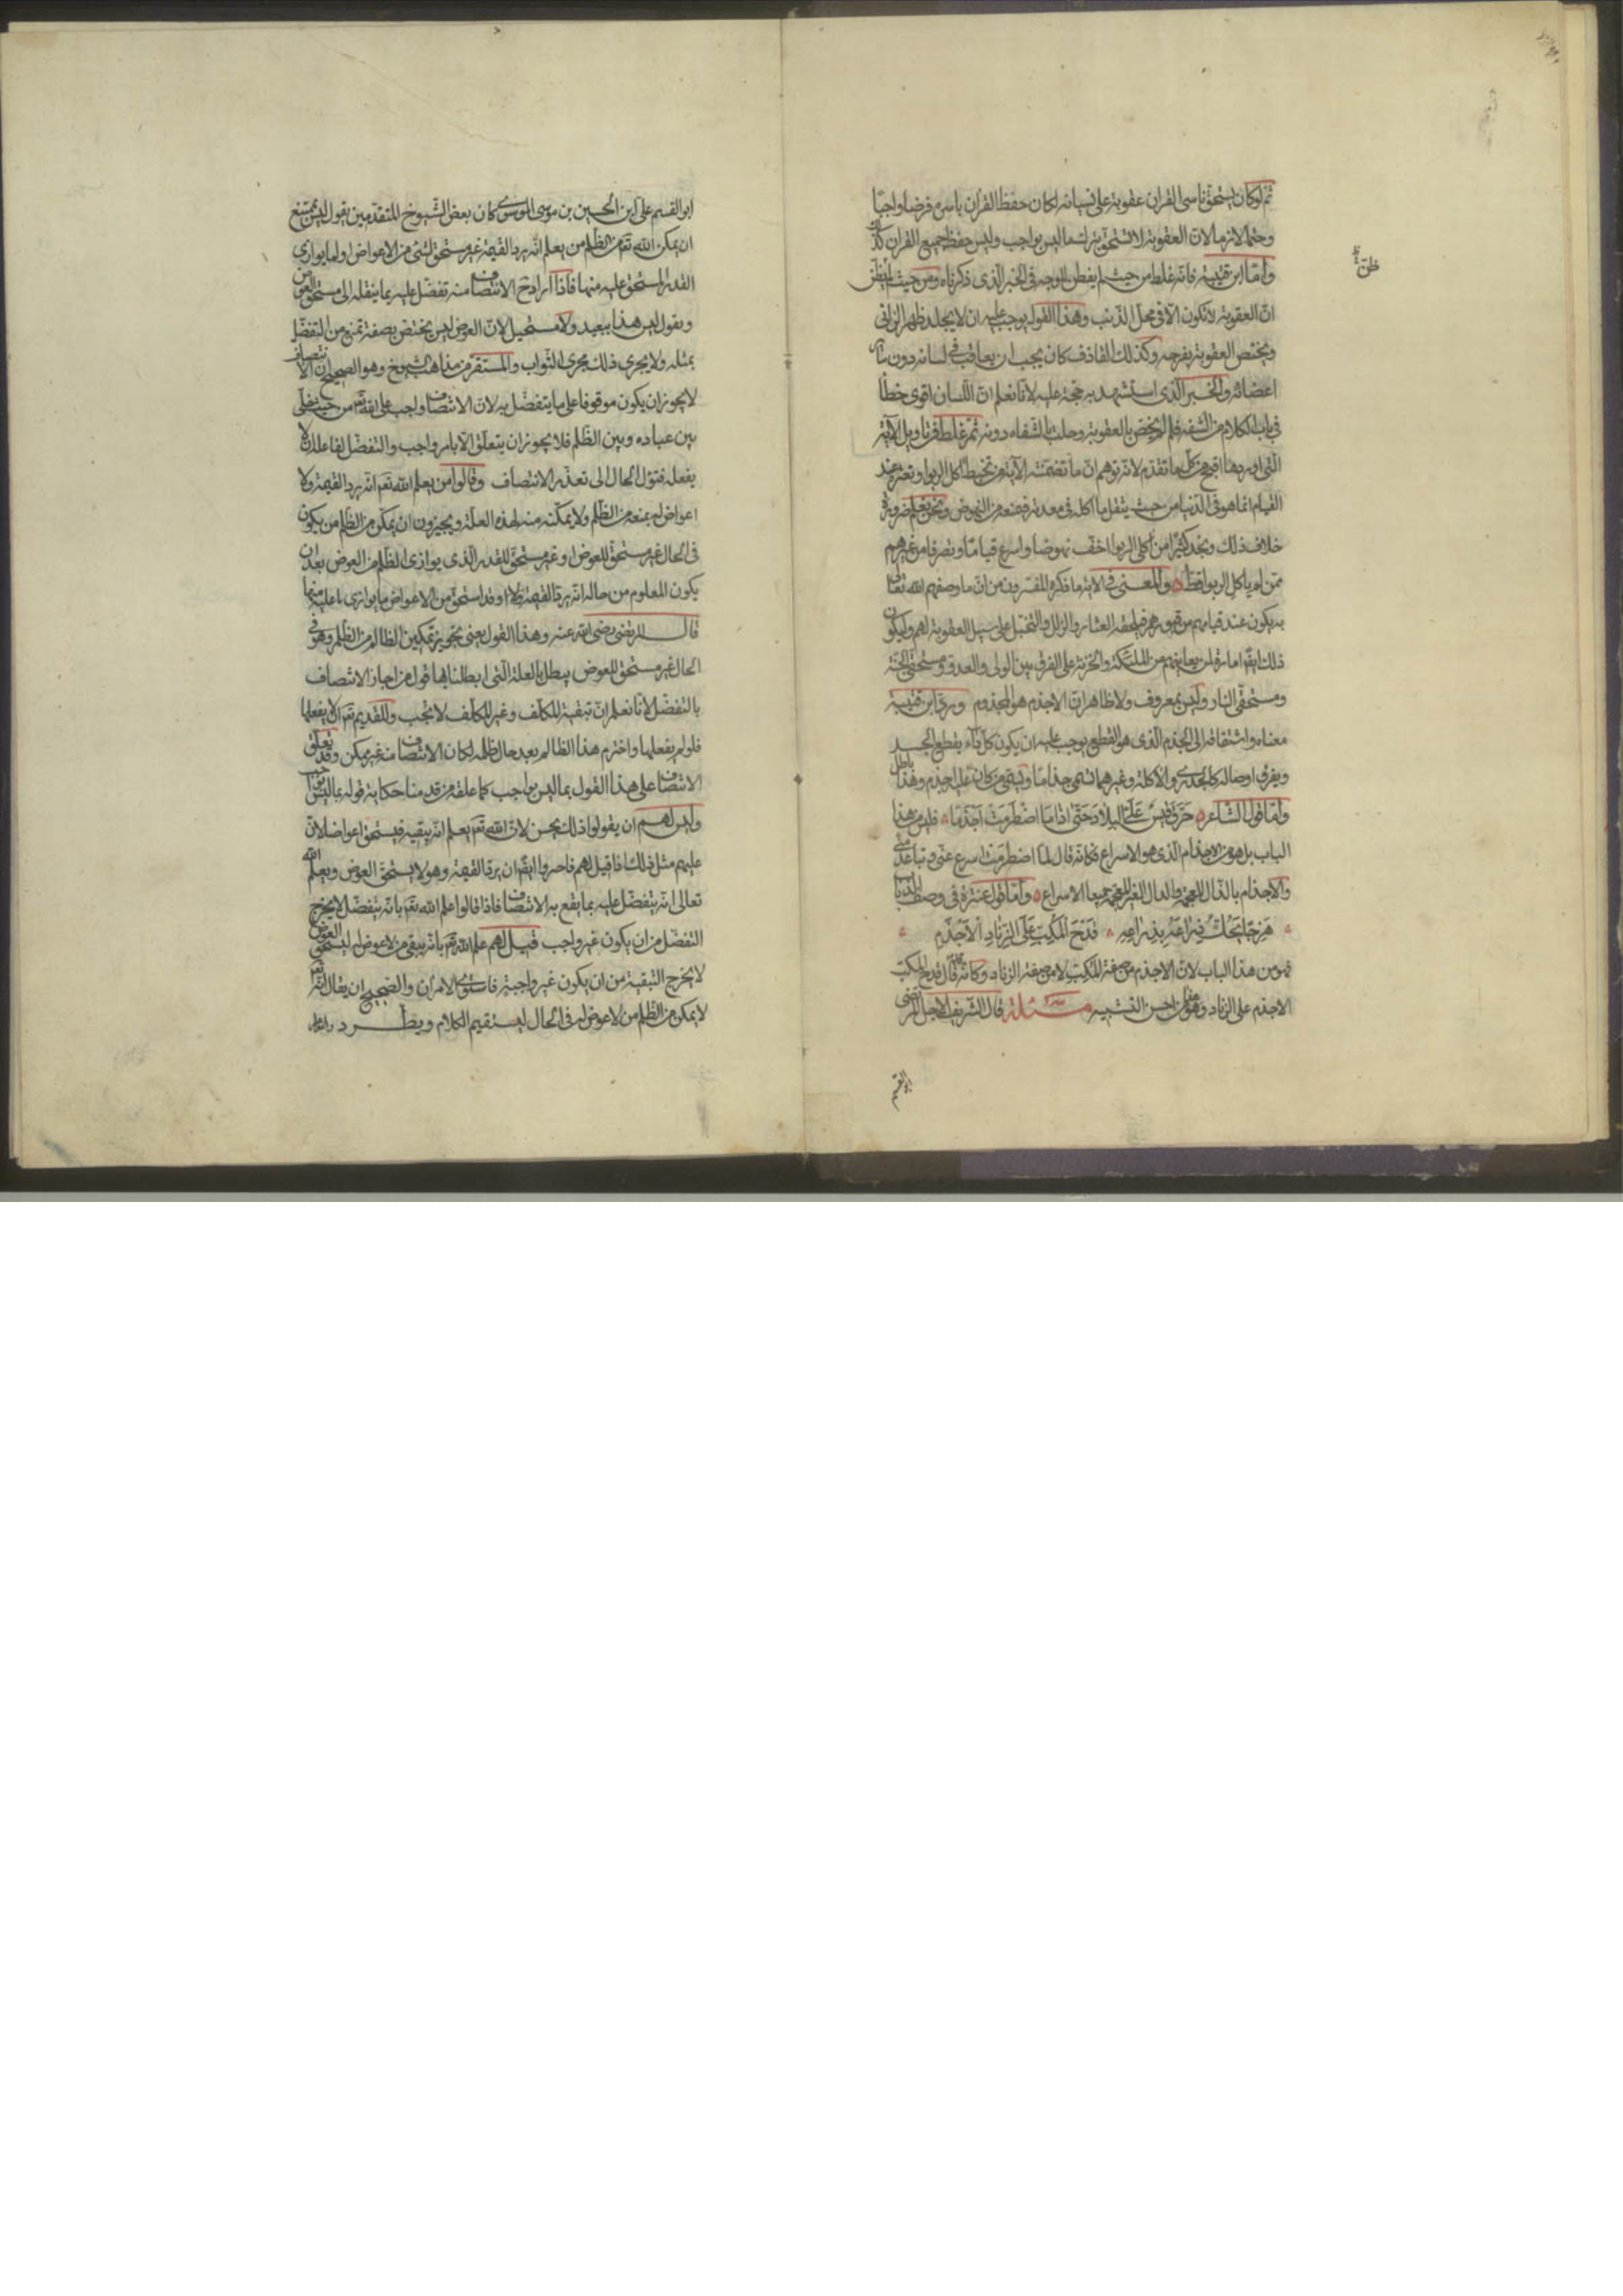 ثم لو كان يستحق ناسى القران عقوبة على نسيانه لكان حفظ القران باسره فرضا واجبا
وحتما لازما لان العقوبة لا تستحق بترك ما ليس بواجب وليس حفظ جميع القران كذلك
واما ابن قتيبة فانه غلط من حيث لم يفطن للوجه فى الخبر الذى ذكرناه ومن حيث ظن
ظن
ان العقوبة لا تكون الا فى محل الذنب وهذا القول يوجب عليه ان لا يجلد ظهر الزانى
ويختص العقوبة بفرجه وكذلك القاذف كان يجب ان يعاقب فى لسانه دون سائر
اعضائه والخبر الذى استشهد به حجة عليه لانا نعلم ان اللسان اقوى حظا
فى باب الكلام من الشفه فلم لم يخص بالعقوبة وحلت بالشفاه دونه ثم غلط فى تاويل الاية
التى اوردها اقبح من كل ما تقدم لانه توهم ان ما تضمنته الاية من تخبط اكل الربوا وتعثره عند
القيام انما هو فى الدنيا من حيث يثقل ما اكله فى معدته فمنعه من النهوض ونحن نعلم ضرورة
خلاف ذلك ونجد كثيرا من اكلى الربوا اخف نهوضا واسرع قياما وتصرفا من غيرهم
ممن لم ياكل الربوا قط والمعنى فى الاية ما ذكره المفسرون من ان ما وصفهم الله تعالى
به يكون عند قيامهم من قبورهم فيلحقهم العثار والزلل والتخبل على سبيل العقوبة لهم وليكون
ذلك ايضا امارة لمن يعاينهم من الملئكة والخزنة على الفرق بين الولى والعدو ومستحقى الجنة
ومستحقى النار وليس بمعروف ولا ظاهر ان الاجذم هو المجذوم ورد ابن قتيبة
معناه واشتقاقه الى الجذم الذى هو القطع يوجب عليه ان يكون كل داء يقطع الجسد
ويفرق اوصاله كالجدرى والاكلة وغيرهما يسمى جذاما ويسمى من كان عليه اجذم وهذا باطل
واما قول الشاعر حرق قيس على البلاد حتى اذا ما اضطرمت اجذما فليس من هذا
الباب بل هو من الاجذام الذى هو الاسراع فكانه قال لما اضطرمت اسرع عنى وتباعد منى
والاجذام بالذال المعجمة والدال الغير المعجمة جميعا الاسراع واما قول عنترة فى وصف الذباب
هزجا يحك ذراعه بذراعه قدح المكب على الزناد الاجذم
فهو من هذا الباب لان الاجذم من صفة المكب لا من صفة الزناد وكانه قال قدح المكب
الاجذم على الزناد وهو من احسن التشبيه مسئلة قال الشريف الاجل المرتضى
ابو القسم
ابو القسم على ابن الحسين بن موسى الموسوى كان بعض الشيوخ المتقدمين يقول ليس يمتنع
ان يمكن الله تع من الظلم من يعلم انه يرد القيمة غير مستحق لشئ من الاعواض او لما يوازى
القدر المستحق عليه منها فاذا اراد الانتصاف منه تفضل عليه بما ينقله الى مستحق العوض
ويقول ليس هذا ببعيد ولا مستحيل لان العوض ليس يختص بصفة تمنع من التفضل
بمثله ولا يجرى ذلك مجرى الثواب والمستقر من مذاهب الشيوخ وهو الصحيح ان الانتصاف
لا يجوز ان يكون موقوفا على ما يتفضل به لان الانتصاف واجب على الله تع من حيث خلى
بين عباده وبين الظلم فلا يجوز ان يتعلق الا بامر واجب والتفضل لفاعله ان لا
يفعله فتؤل الحال الى تعذر الانتصاف وقالوا من يعلم الله تع انه يرد القيمة ولا
اعواض له يمنعه من الظلم ولا يمكنه منه لهذه العلة ويجيزون ان يمكن من الظلم من يكون
فى الحال غير مستحق للعوض او غير مستحق للقدر الذى يوازى الظلم من العوض بعد ان
يكون المعلوم من حاله انه يرد القيمة وقد استحق من الاعواض ما يوازى ما عليه منها
قال المرتضى رضى الله عنه وهذا القول يعنى تجويز تمكين الظالم من الظلم وهو فى
الحال غير مستحق للعوض يبطل بالعلة التى ابطلنا بها قول من اجاز الانتصاف
بالتفضل لانا نعلم ان تبقية المكلف وغير المكلف لا تجب وللقديم تع ان لا يفعلها
فلو لم يفعلها واخترم هذا الظالم بعد حال ظلمه لكان الانتصاف منه غير ممكن وقد تعلق
الانتصاف على هذا القول بما ليس بواجب كما علقه من قدمنا حكاية قوله بما ليس بواجب
وليس لهم ان يقولوا ذلك يحسن لان الله تع يعلم انه يبقيه فيستحق اعواضا لان
عليهم مثل ذلك اذا قيل لهم فاجيزوا ايضا ان يرد القيمة وهو لا يستحق العوض ويعلم الله
تعالى انه يتفضل عليه بما يقع به الانتصاف فاذا قالوا علم الله تع بانه يتفضل لا يخرج
التفضل من ان يكون غير واجب قيل لهم علم الله تع بانه يبقى من لا عوض له ليستحق العوض
لا يخرج التبقية من ان يكون غير واجبة فاستوى الامران والصحيح ان يقال انه تع
لا يمكن من الظلم من لا عوض له فى الحال ليستقيم الكلام ويطرد